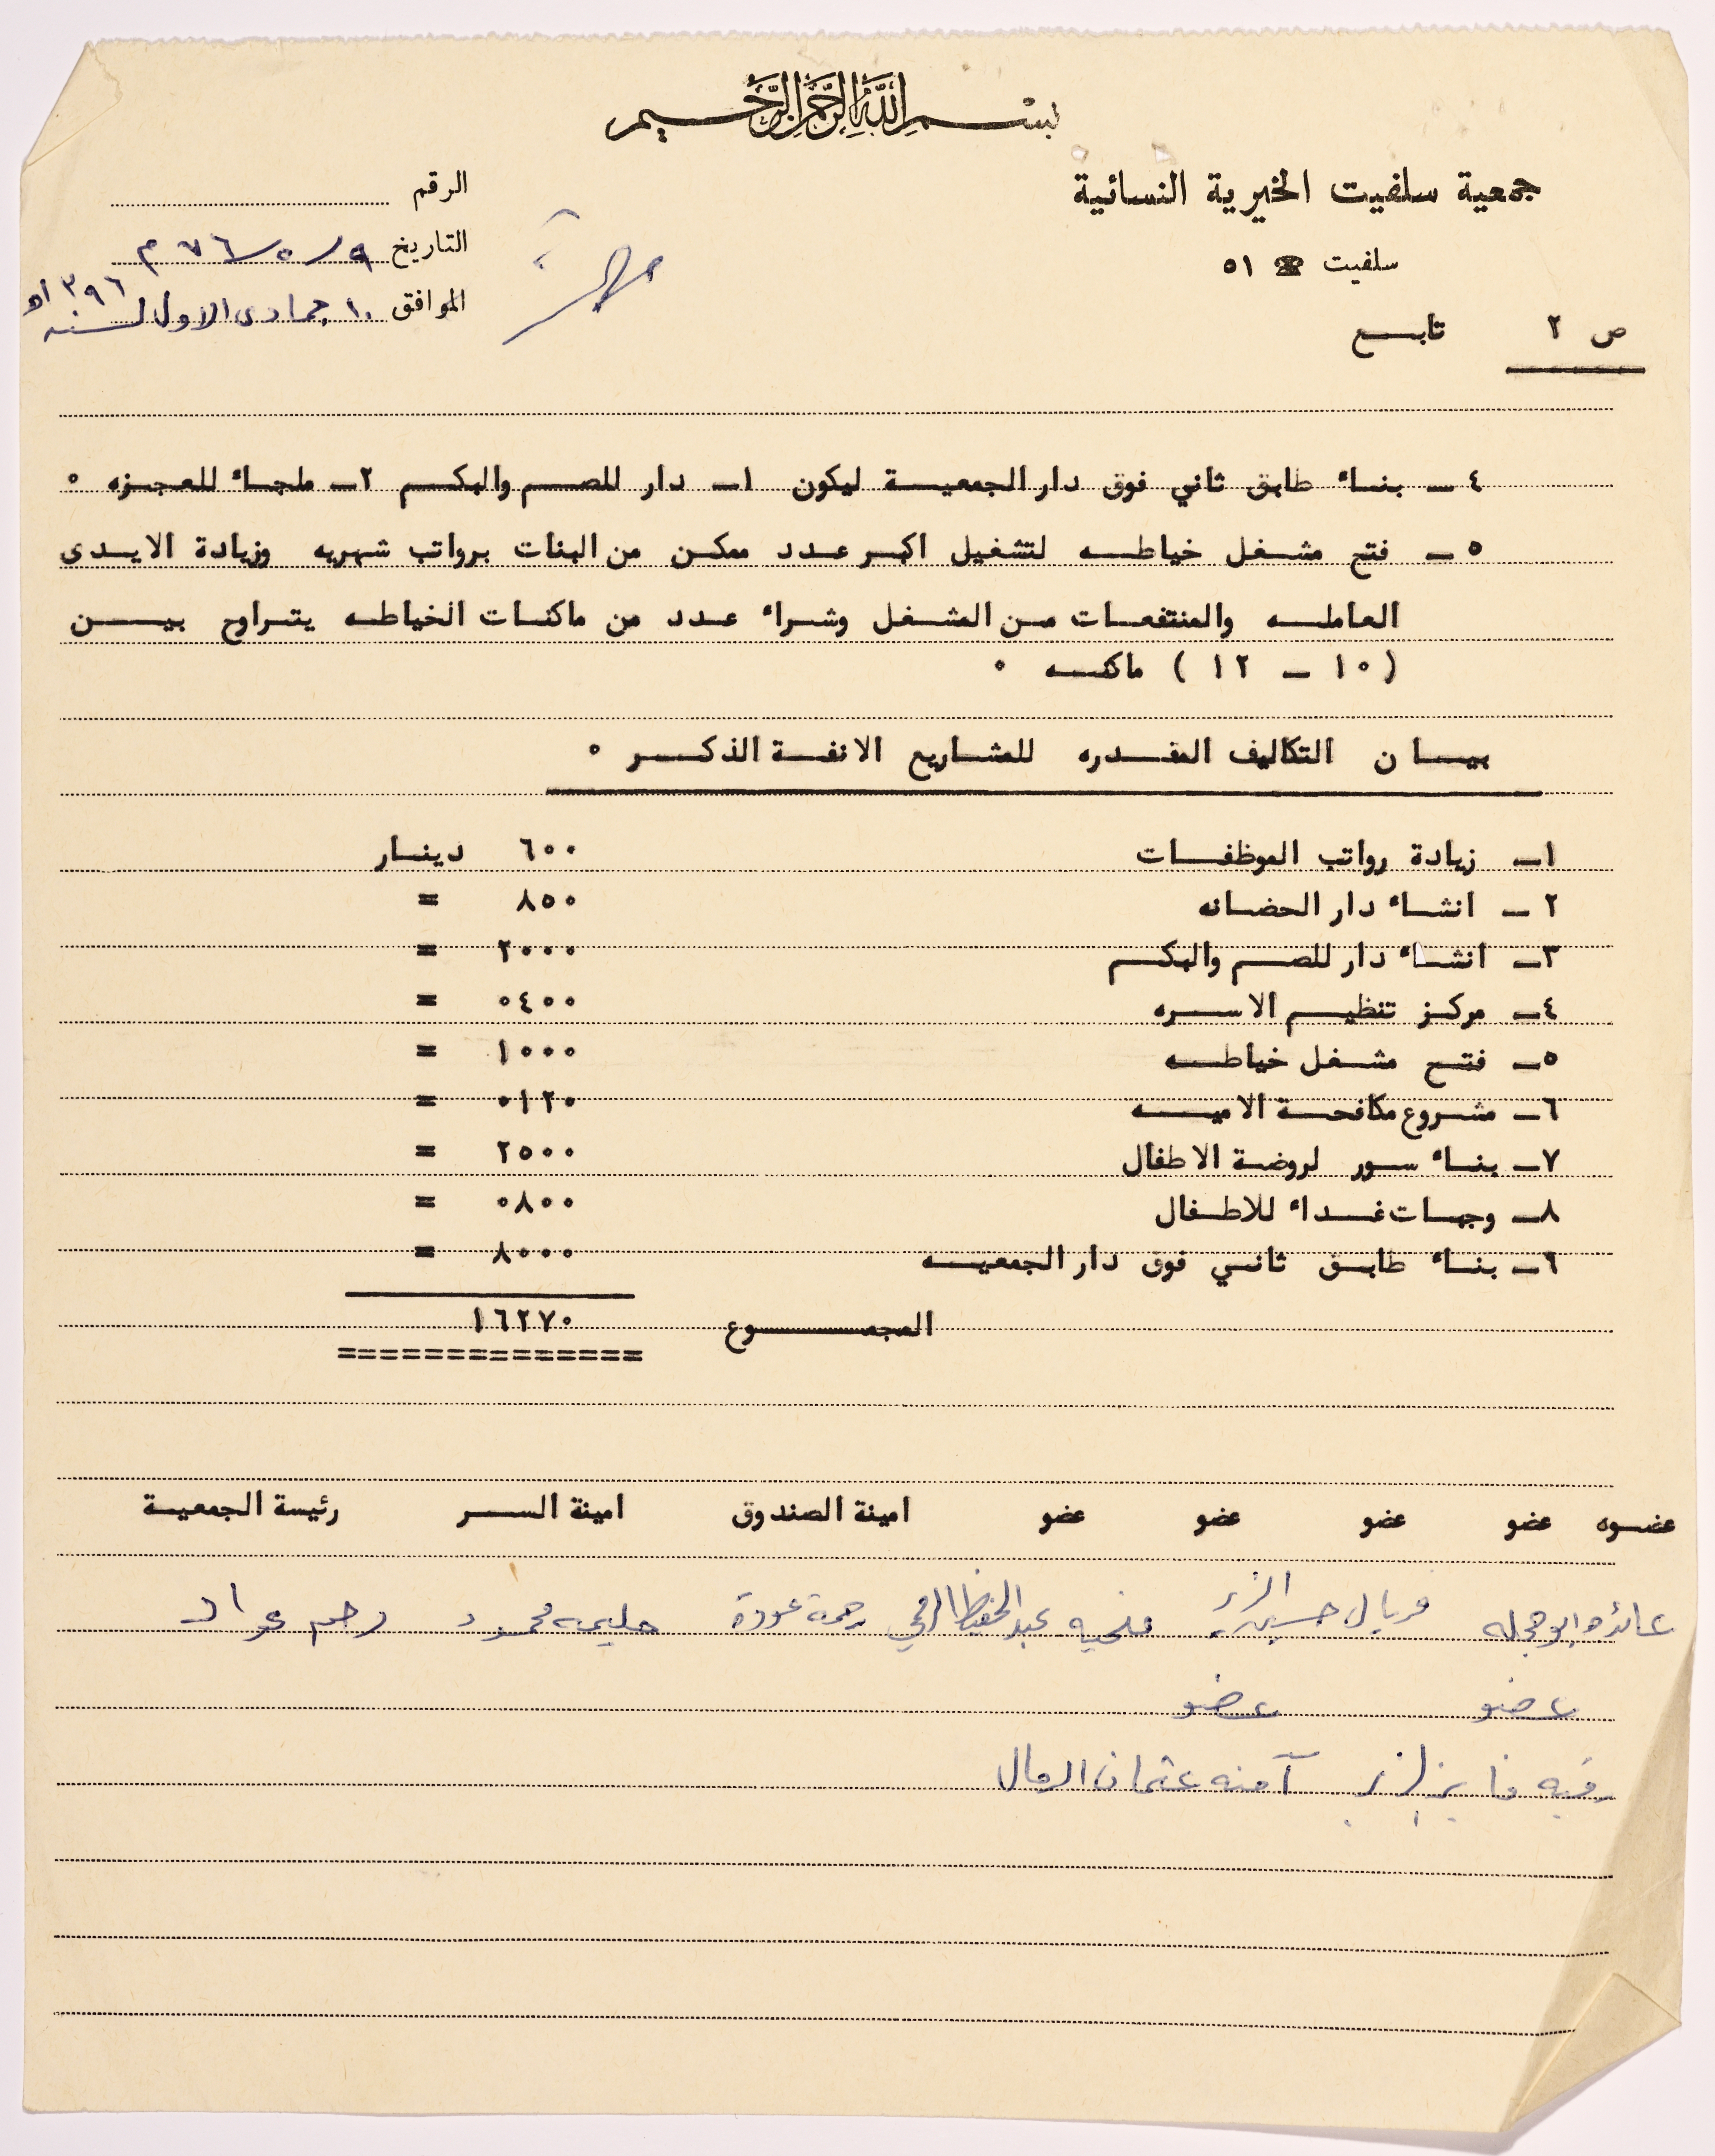 بسم الله الرحمن الرحيم
جمعية سلفيت الخيرية النسائية
سلفيت ☎ ٥١
الرقم
التاريخ ٩/٥/٧٦ م
الموافق ١٠ جمادى الاول لسنه ١٣٩٦ه
ص ٢ تابـــع
٤ ــ بنـاء طابق ثاني فوق دار الجمعيـــة ليكون ١ــ دار للصــم والبكــم ٢ــ ملجـاء للعجـزه ٠
٥ ــ فتح مشـغل خياطـــه لتشغيل اكبـر عـدد ممكـن من البنات برواتب شهريه وزيادة الايــدى
العاملــه والمنتفعـات مـن المشـغل وشـراء عـدد من ماكنـات الخياطـه يتـراوح بيـــن
( ١٠ ــ ١٢ ) ماكنـــه ٠
بيـــا ن التكاليف المقـــدره للمشـاريع الانفـة الذكـــر ٠
١ــ زيادة رواتب الموظفـــات ٦٠٠ دينــار
٢ ــ انشـاء دار الحضـانه ٨٥٠ =
٣ــ انشـاء دار للصـم والبكـــم ٢٠٠٠ =
٤ــ مركـز تنظيـم الاســره ٠٤٠٠ =
٥ــ فتـــح مشـغل خياطـــه ١٠٠٠ =
٦ــ مشـروع مكافحـة الاميـــه ٠١٢٠ =
٧ــ بنـاء ســور لروضـة الاطفال ٢٥٠٠ =
٨ــ وجبـات غــداء للاطـفال ٠٨٠٠ =
٦ــ بنـاء طابـق ثانـي فوق دار الجمعيـــه ٨٠٠٠ =
المجمـــــوع ١٦٢٧٠
==============
عضـوه عضو عضو عضو عضو امينة الصندوق امينة الســـر رئيسة الجمعيـــة
عائده ابو حجله فريال حسين الزير فتحيه عبد الحفيظ رحمة عودة حليمه محمود رحم عواد
عضو عضو
رقيه فايز الزير آمنه عثمان الرمال